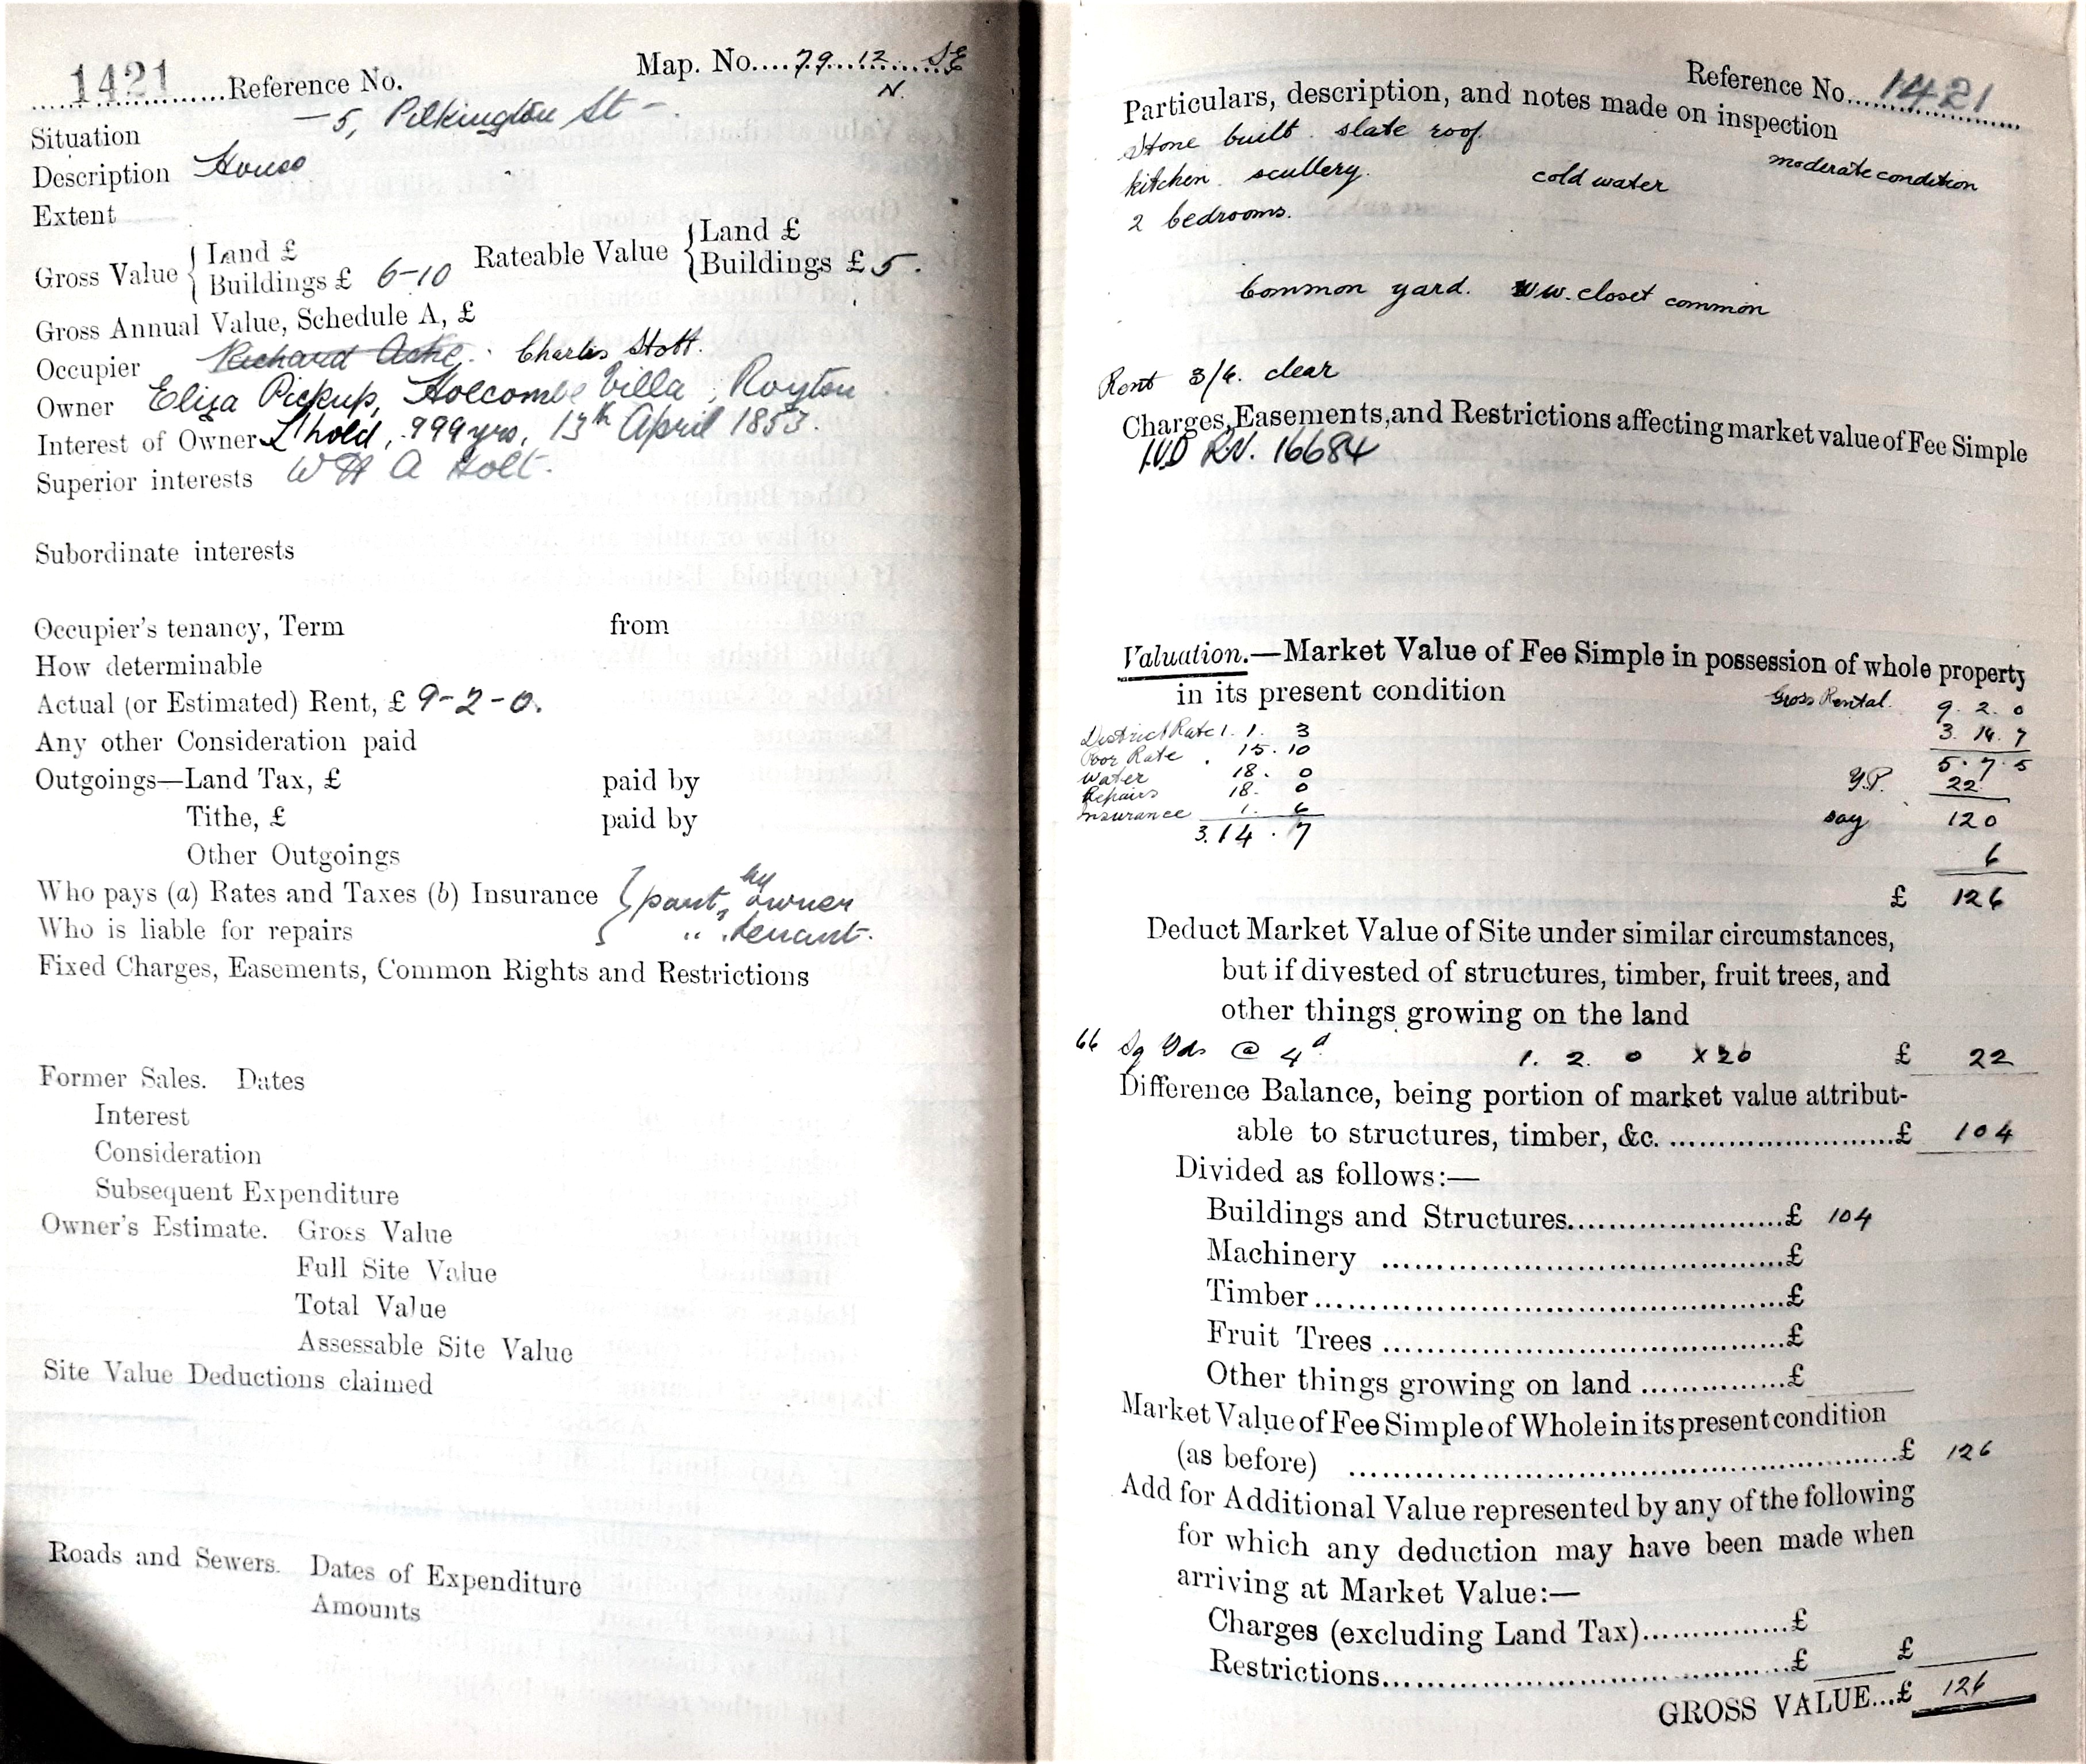 1421 Reference No. Map. No. 79. 12. SE
N.
Situation — 5, Pilkington St —
Description House
Extent
Gross Value { Land £ Rateable Value { Land £
Buildings £ 6-10 Buildings £ 5.
Gross Annual Value, Schedule A, £
Occupier Richard Ashe. Charles Stott.
Owner Eliza Pickup, Holcombe Villa, Royton
Interest of Owner L'hold, 999 yrs, 13th April 1853.
Superior interests W H A Holt.
Subordinate interests
Occupier's tenancy, Term from
How determinable
Actual (or Estimated) Rent, £ 9-2-0.
Any other Consideration paid
Outgoings—Land Tax, £ paid by
Tithe, £ paid by
Other Outgoings
Who pays (a) Rates and Taxes (b) Insurance { part, by owner
Who is liable for repairs " tenant.
Fixed Charges, Easements, Common Rights and Restrictions
Former Sales. Dates
Interest
Consideration
Subsequent Expenditure
Owner's Estimate. Gross Value
Full Site Value
Total Value
Assessable Site Value
Site Value Deductions claimed
Roads and Sewers. Dates of Expenditure
Amounts
Reference No. 1421
Particulars, description, and notes made on inspection
Stone built. slate roof.
kitchen. scullery. cold water moderate condition
2 bedrooms.
Common yard. W.W. closet common
Rent 3/6. clear
Charges, Easements, and Restrictions affecting market value of Fee Simple
IVD RN. 16684
Valuation.—Market Value of Fee Simple in possession of whole property
in its present condition Gross Rental. 9. 2. 0
District Rate 1. 1. 3 3. 14. 7
Poor Rate . 15. 10 5. 7. 5
Water 18. 0 Y.P. 22
Repairs 18. 0
Insurance 1. 6 say 120
3. 14. 7 6
£ 126
Deduct Market Value of Site under similar circumstances,
but if divested of structures, timber, fruit trees, and
other things growing on the land
66 Sq Yds @ 4d 1. 2. 0 x 20 £ 22
Difference Balance, being portion of market value attribut-
able to structures, timber, &c. £ 104
Divided as follows:—
Buildings and Structures £ 104
Machinery £
Timber £
Fruit Trees £
Other things growing on land £
Market Value of Fee Simple of Whole in its present condition
(as before) £ 126
Add for Additional Value represented by any of the following
for which any deduction may have been made when
arriving at Market Value:—
Charges (excluding Land Tax) £
Restrictions £ £
GROSS VALUE...£ 126